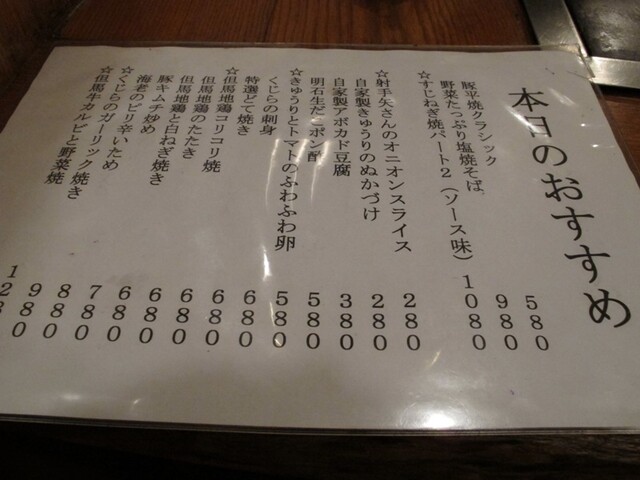 本日のおすすめ
豚平焼クラシック 580
野菜たっぷり塩焼そば 980
☆すじねぎ焼パート2(ソース味) 1080
☆射手矢さんのオニオンスライス 280
自家製きゅうりのぬかづけ 280
自家製アボカド豆腐 380
明石生だこポン酢 580
☆きゅうりとトマトのふわふわ卵 580
くじらの刺身 680
特選どて焼き 680
☆但馬地鶏コリコリ焼 680
但馬地鶏のたたき 680
但馬地鶏と白ねぎ焼き 680
豚キムチ炒め 780
海老のピリ辛いため 880
☆くじらのガーリック焼き 980
☆但馬牛カルビと野菜焼 1280